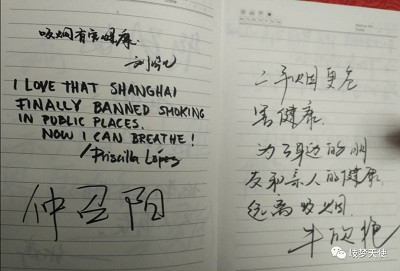 吸烟有害健康.
I LOVE THAT SHANGHAI
FINALLY BANNED SMOKING
IN PUBLIC PLACES.
NOW I CAN BREATHE!
/Priscilla López
仲召阳
二手烟更危
害健康.
为了身边的朋
友和亲人的健康
远离吸烟.
岐梦天使